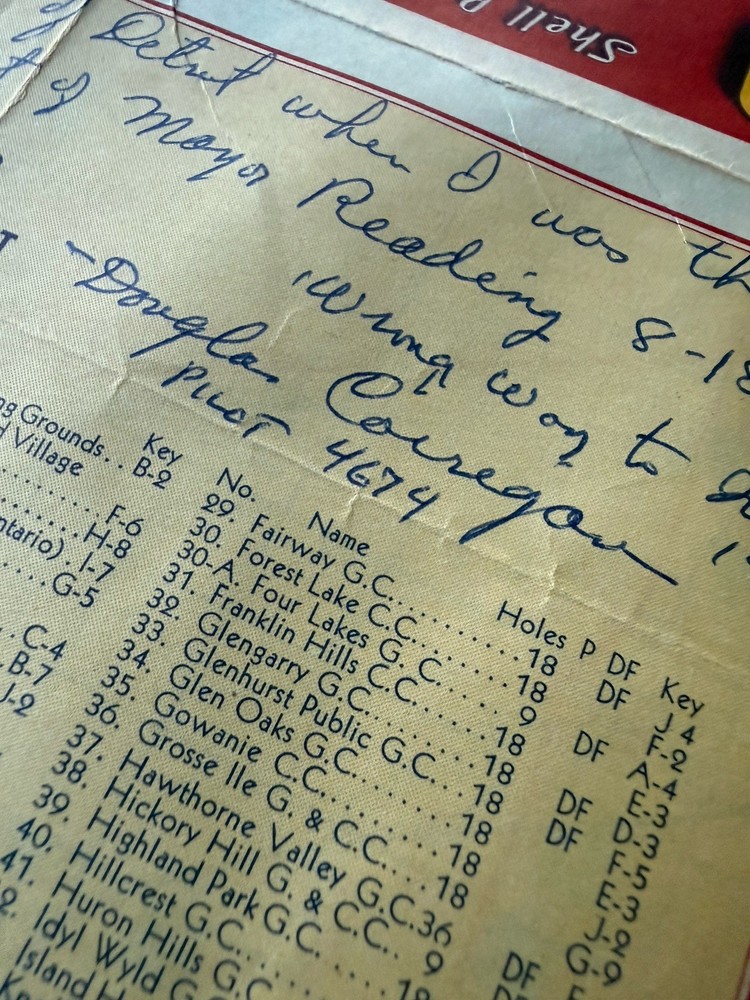 Shell
of Detroit when I was th
of Mayor Reading 8-18
"Wrong Way to
-Douglas Corrigan
PILOT 4674
Key
ng Grounds.. B-2
d Village
F-6
H-8
ntario). I-7
G-5
C-4
B-7
J-2
No. Name Holes P DF Key
29. Fairway G.C. 18 DF J-4
30. Forest Lake C.C. 18 F-2
30-A. Four Lakes G. C. 9 A-4
31. Franklin Hills C.C. 18 DF E-3
32. Glengarry G.C. 18 D-3
33. Glenhurst Public G.C. 18 DF F-5
34. Glen Oaks G.C. 18 DF E-3
35. Gowanie C.C. 18 J-2
36. Grosse Ile G. & C.C. 18 G-9
37. Hawthorne Valley G.C. 36
38. Hickory Hill G. & C.C. 9
39. Highland Park G.C. 18 DF
40. Hillcrest G.C.
41. Huron Hills G.C
2. Idyl Wyld G
Island H